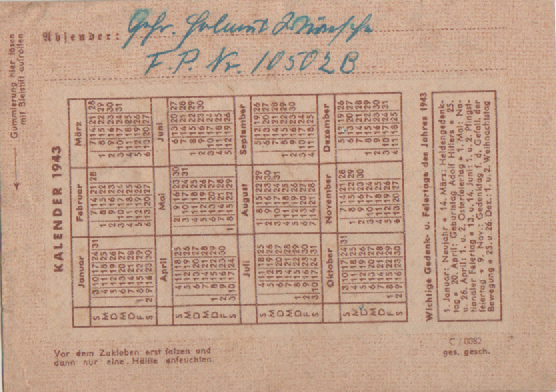 Absender: Gefr. Helmut Wünsche
F. P. Nr. 10502 B.
Gummierung hier lösen
mit Bleistift aufrollen
KALENDER 1943
Januar Februar März
S 3 10 17 24 31 7 14 21 28 7 14 21 28
M 4 11 18 25 1 8 15 22 1 8 15 22 29
D 5 12 19 26 2 9 16 23 2 9 16 23 30
M 6 13 20 27 3 10 17 24 3 10 17 24 31
D 7 14 21 28 4 11 18 25 4 11 18 25
F 1 8 15 22 29 5 12 19 26 5 12 19 26
S 2 9 16 23 30 6 13 20 27 6 13 20 27
April Mai Juni
S 4 11 18 25 2 9 16 23 30 6 13 20 27
M 5 12 19 26 3 10 17 24 31 7 14 21 28
D 6 13 20 27 4 11 18 25 1 8 15 22 29
M 7 14 21 28 5 12 19 26 2 9 16 23 30
D 1 8 15 22 29 6 13 20 27 3 10 17 24
F 2 9 16 23 30 7 14 21 28 4 11 18 25
S 3 10 17 24 1 8 15 22 29 5 12 19 26
Juli August September
S 4 11 18 25 1 8 15 22 29 5 12 19 26
M 5 12 19 26 2 9 16 23 30 6 13 20 27
D 6 13 20 27 3 10 17 24 31 7 14 21 28
M 7 14 21 28 4 11 18 25 1 8 15 22 29
D 1 8 15 22 29 5 12 19 26 2 9 16 23 30
F 2 9 16 23 30 6 13 20 27 3 10 17 24
S 3 10 17 24 31 7 14 21 28 4 11 18 25
Oktober November Dezember
S 3 10 17 24 31 7 14 21 28 5 12 19 26
M 4 11 18 25 1 8 15 22 29 6 13 20 27
D 5 12 19 26 2 9 16 23 30 7 14 21 28
M 6 13 20 27 3 10 17 24 1 8 15 22 29
D 7 14 21 28 4 11 18 25 2 9 16 23 30
F 1 8 15 22 29 5 12 19 26 3 10 17 24 31
S 2 9 16 23 30 6 13 20 27 4 11 18 25
Wichtige Gedenk- u. Feiertage des Jahres 1943
1. Januar: Neujahr • 14. März: Heldengedenk-
tag • 20. April: Geburtstag Adolf Hitlers • 25.
u. 26. April: 1. u. 2. Osterfeiertag • 1. Mai: Na-
tionaler Feiertag • 13. u. 14. Juni: 1. u. 2. Pfingst-
feiertag • 9. Nov.: Gedenktag f. d. Gefall. der
Bewegung • 25. u. 26. Dez.: 1. u. 2. Weihnachtstag
Vor dem Zukleben erst falzen und
dann nur eine Hälfte anfeuchten.
C / 0082
ges. gesch.